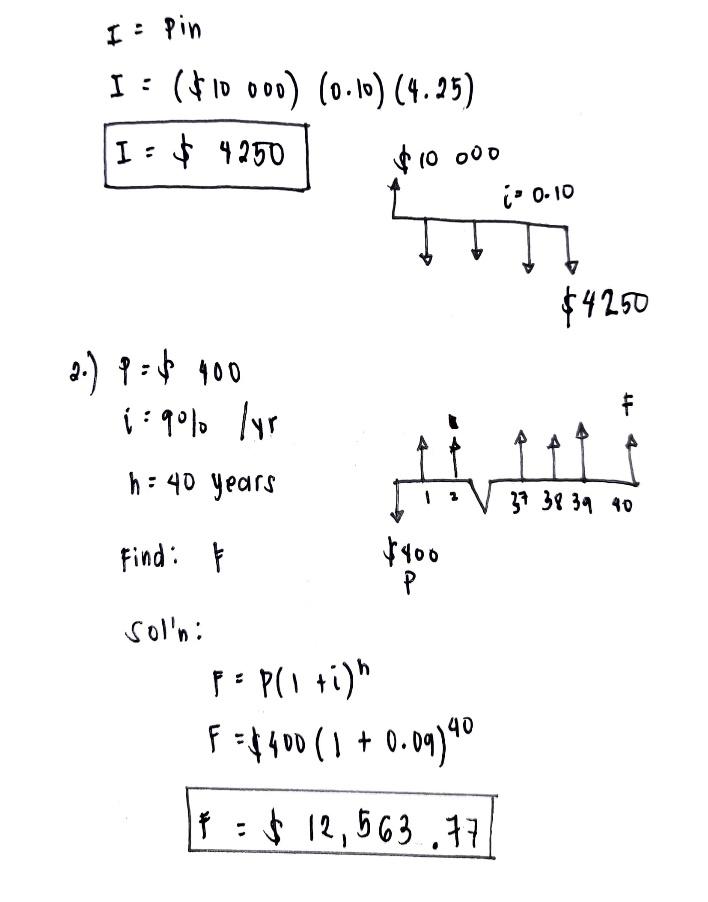 I = Pin
I = ($10 000) (0.10) (4.25)
I = $ 4250
$10 000
i = 0.10
$4250
2.) P = $ 400
i = 9% /yr
n = 40 years
F
1 2 37 38 39 40
$400
P
Find: F
Sol'n:
F = P(1 + i)^n
F = $400 (1 + 0.09)^40
F = $ 12,563.77